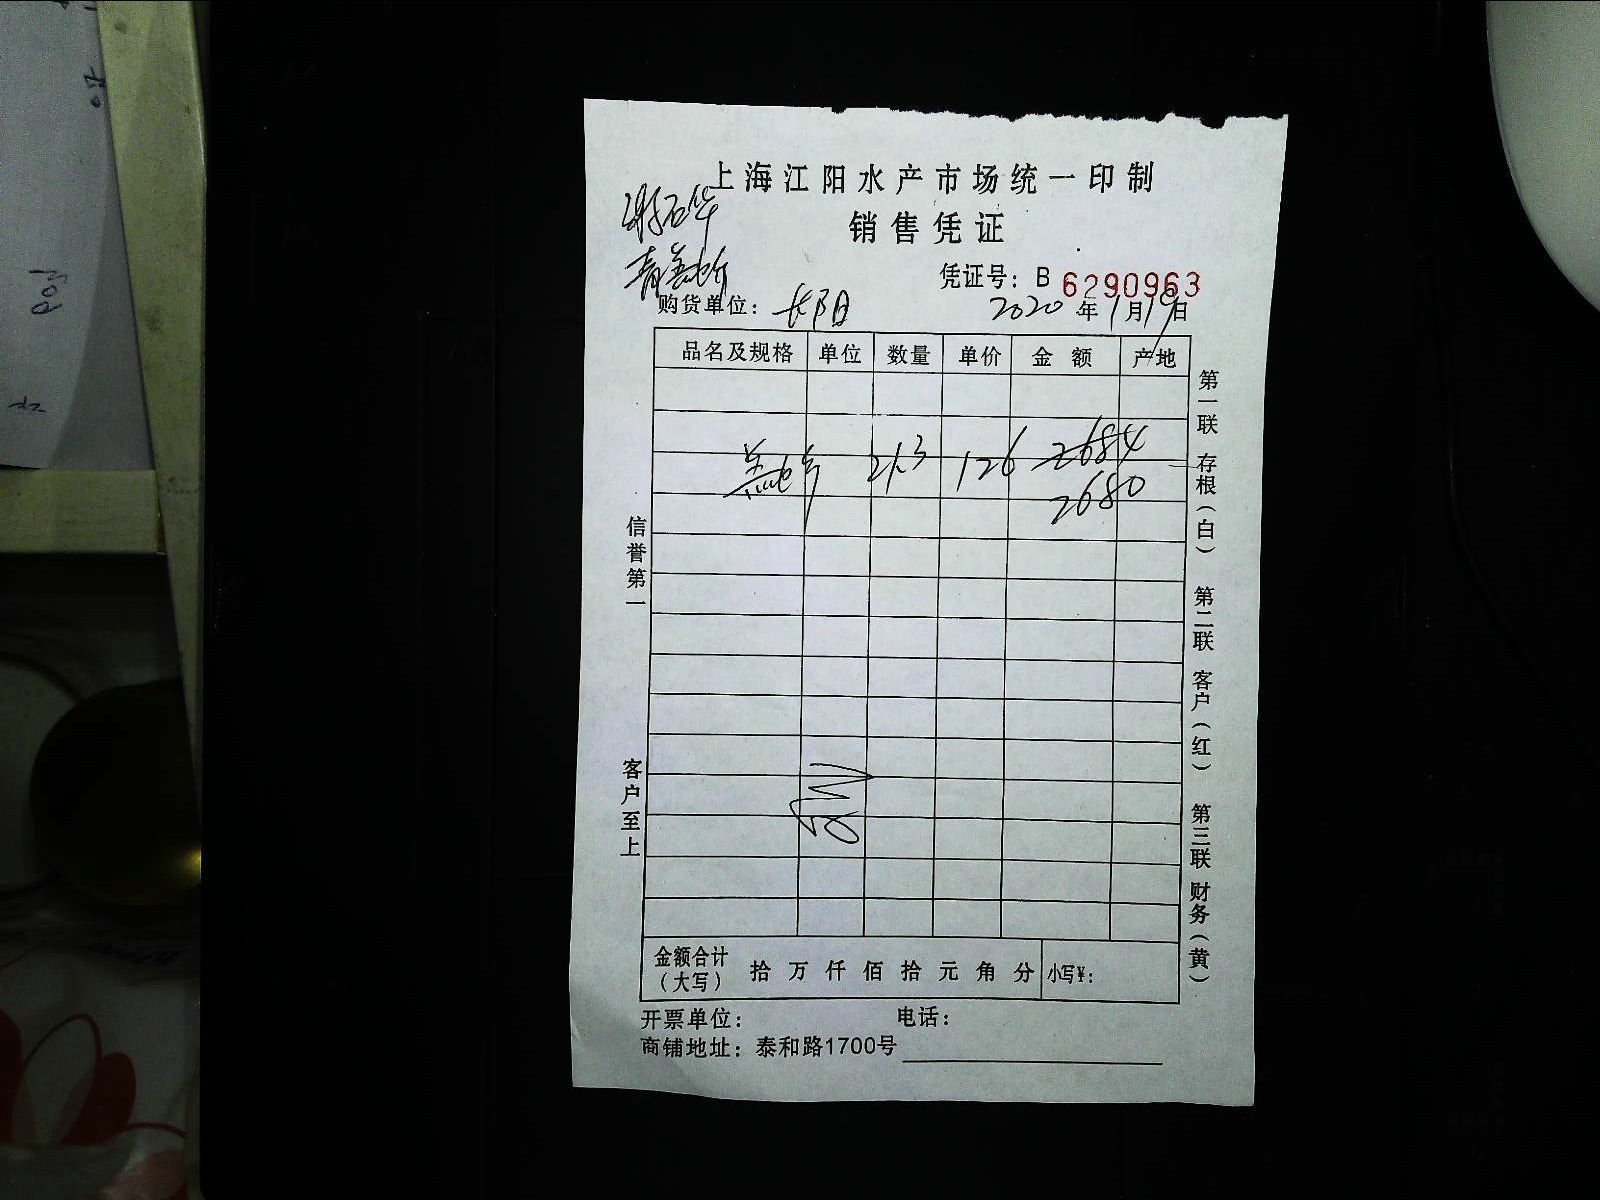 上海江阳水产市场统一印制
销售凭证
凭证号：B 6290963
购货单位：长阳 2020年1月19日
品名及规格 单位 数量 单价 金额 产地
21.3 126 2684
2680
信誉第一
客户至上
第一联 存根（白） 第二联 客户（红） 第三联 财务（黄）
金额合计（大写） 拾 万 仟 佰 拾 元 角 分 小写¥：
开票单位： 电话：
商铺地址：泰和路1700号